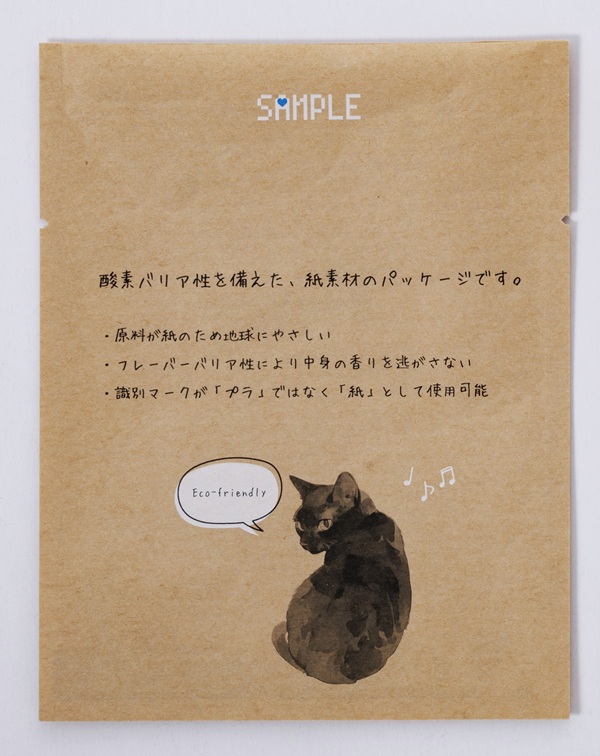 SAMPLE
酸素バリア性を備えた、紙素材のパッケージです。
・原料が紙のため地球にやさしい
・フレーバーバリア性により中身の香りを逃がさない
・識別マークが「プラ」ではなく「紙」として使用可能
Eco-friendly